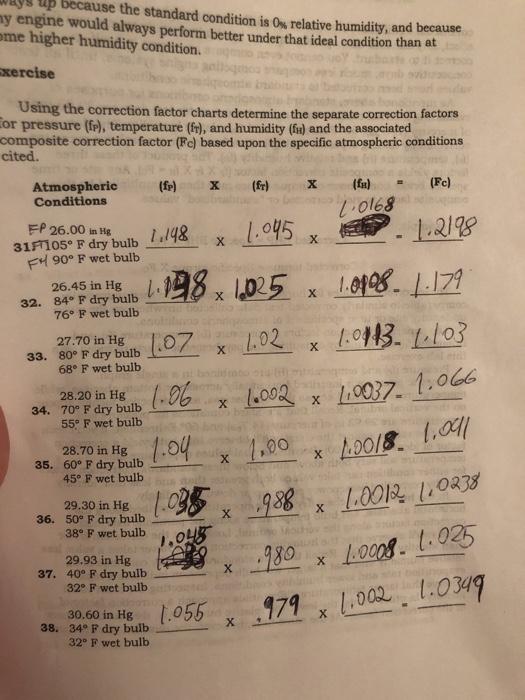 ways up because the standard condition is 0% relative humidity, and because
ny engine would always perform better under that ideal condition than at
ome higher humidity condition.
xercise
Using the correction factor charts determine the separate correction factors
for pressure (fp), temperature (fT), and humidity (fH) and the associated
composite correction factor (Fc) based upon the specific atmospheric conditions
cited.
Atmospheric (fp) X (fT) X (fH) = (Fc)
Conditions
1.0168
FP 26.00 in Hg
31. FT 105° F dry bulb 1.148 x 1.045 x - 1.2198
FH 90° F wet bulb
26.45 in Hg
32. 84° F dry bulb x 1.025 x - 1.179
76° F wet bulb
27.70 in Hg
33. 80° F dry bulb 1.07 x 1.02 x 1.0113 - 1.103
68° F wet bulb
28.20 in Hg
34. 70° F dry bulb 1.06 x 1.002 x 1.0037 - 1.066
55° F wet bulb
28.70 in Hg
35. 60° F dry bulb 1.04 x 1.00 x 1.0018 - 1.041
45° F wet bulb
29.30 in Hg
36. 50° F dry bulb x .988 x 1.0012 1.0238
38° F wet bulb
1.045
29.93 in Hg
37. 40° F dry bulb x .980 x 1.0008 - 1.025
32° F wet bulb
30.60 in Hg
38. 34° F dry bulb 1.055 x .979 x 1.002 - 1.0349
32° F wet bulb